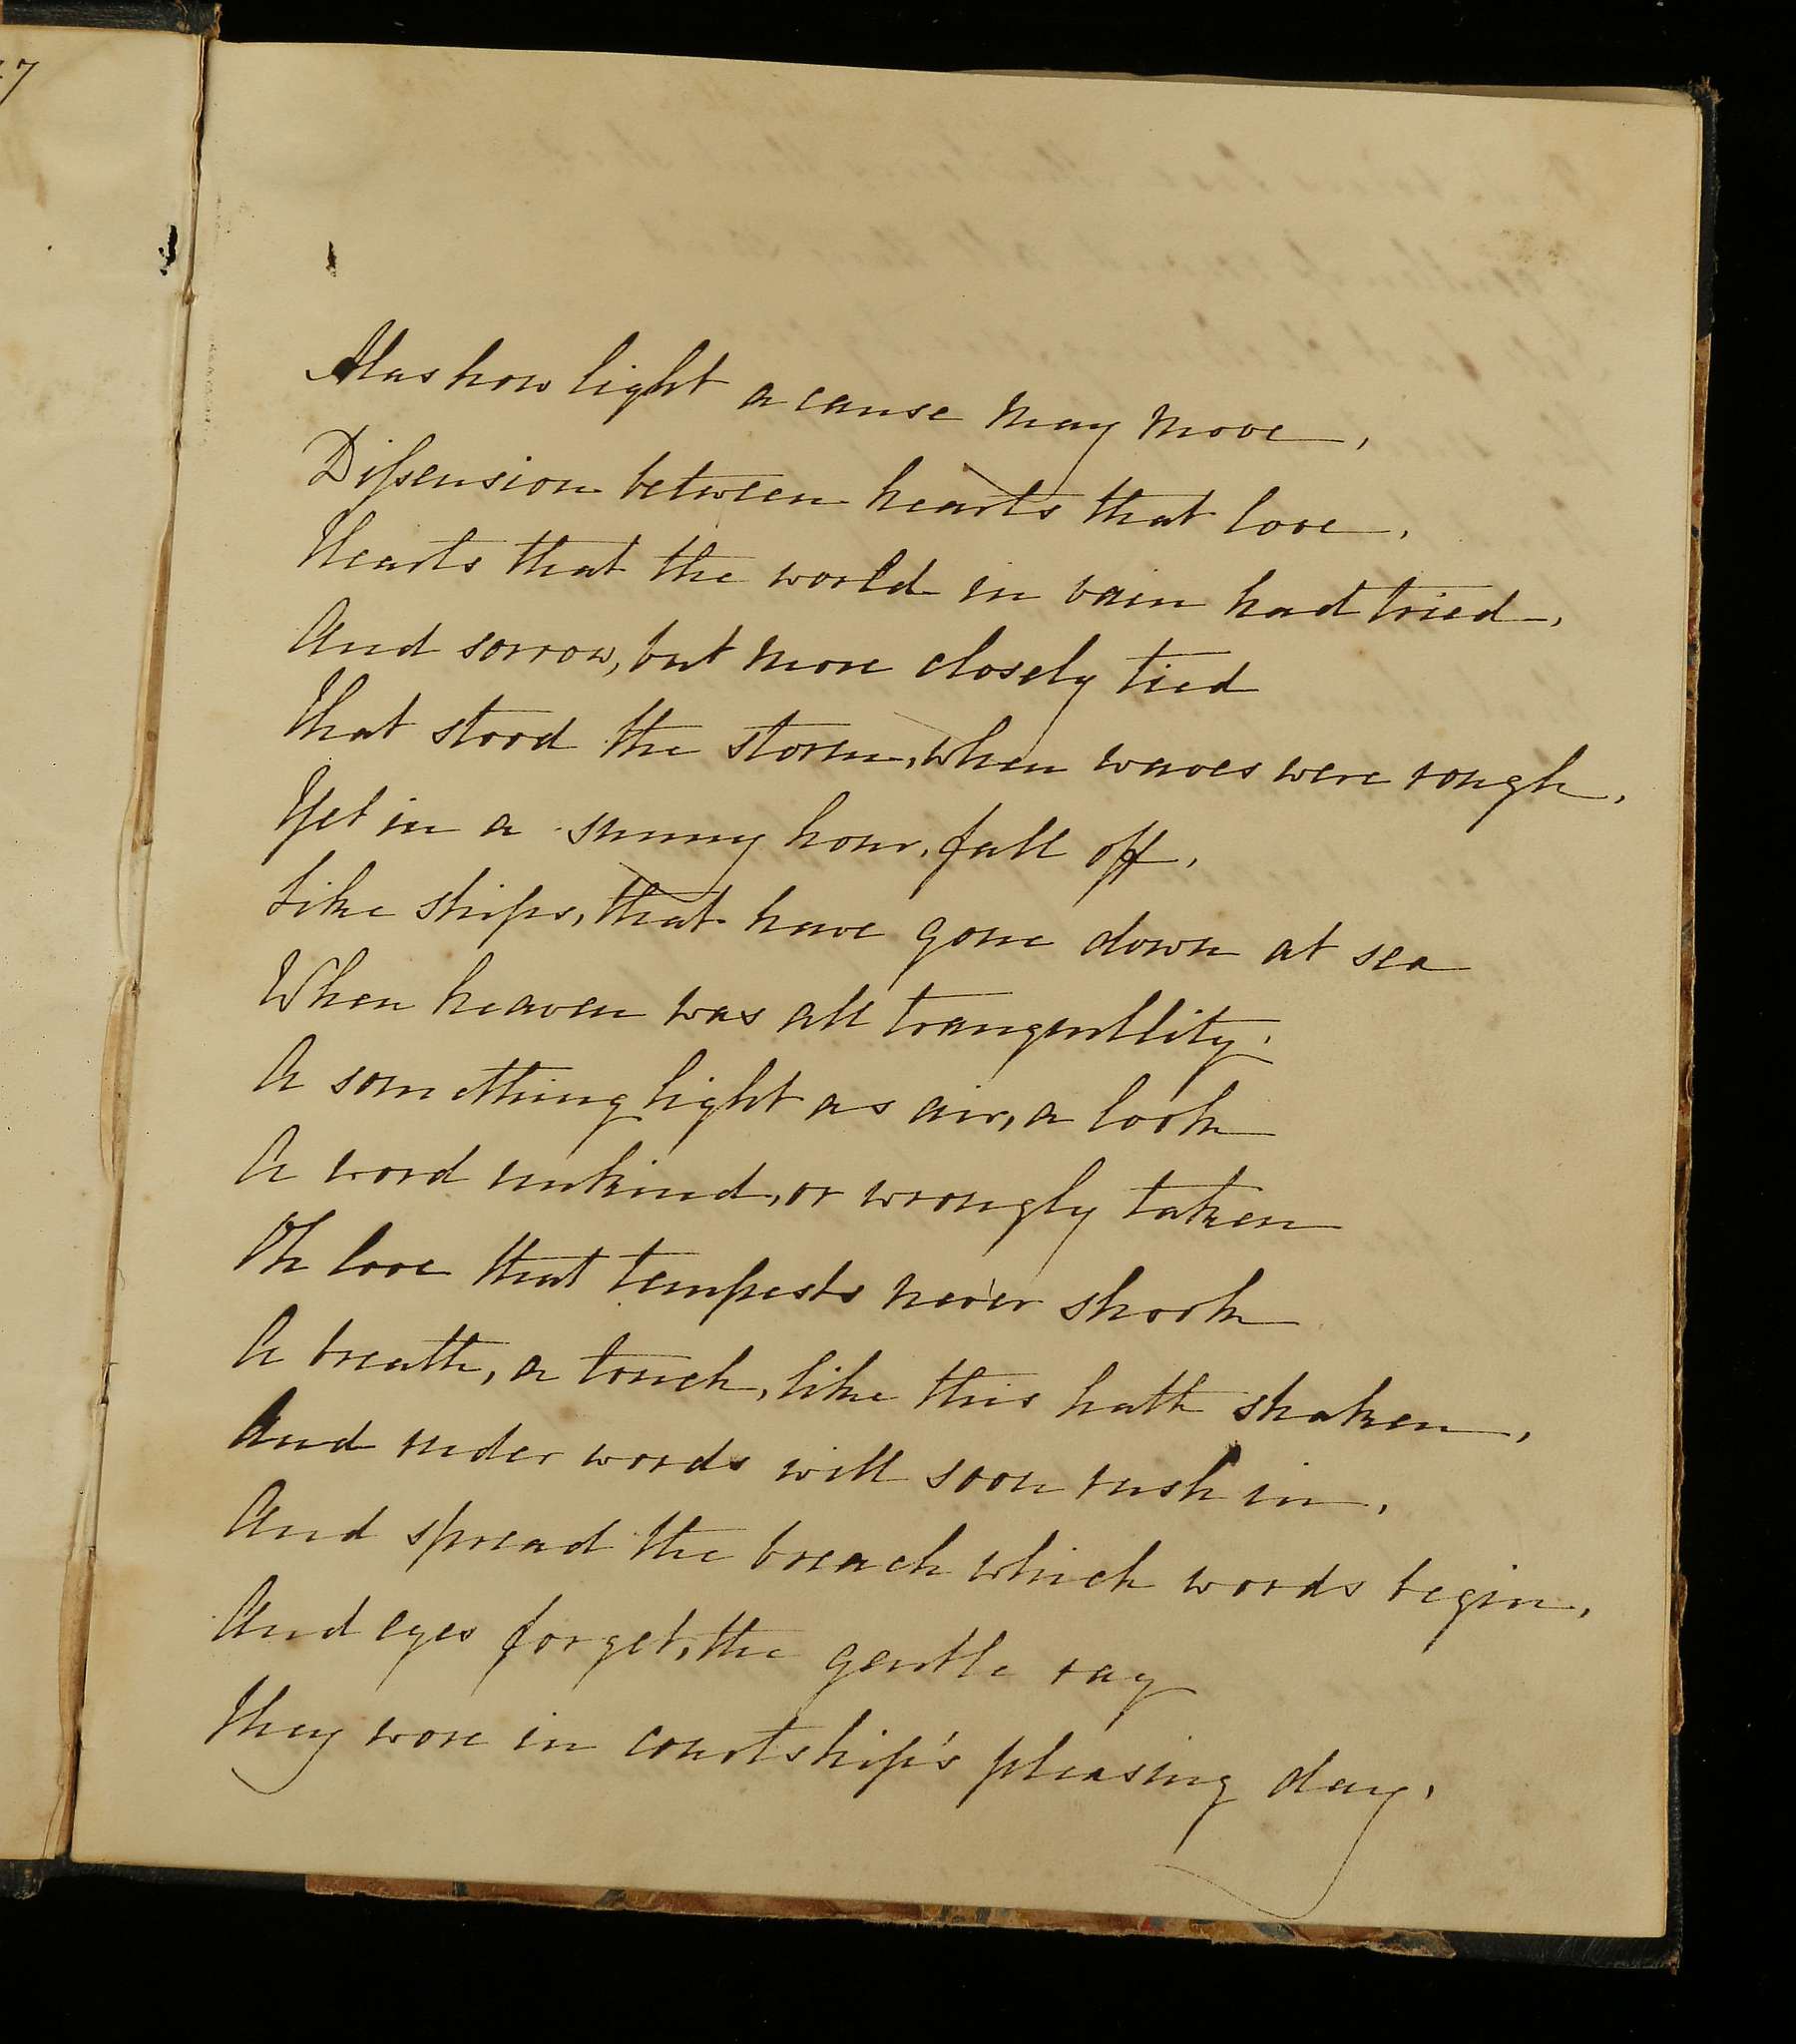 7
Alas how light a cause may move,
Dißension between hearts that love,
Hearts that the world in vain had tried,
And sorrow, but more closely tied
That stood the storm, when waves were rough,
Yet in a sunny hour, fall off,
Like ships, that have gone down at sea
When heaven was all tranquillity.
A something light as air, a look
A word unkind, or wrongly taken
Oh love that tempests ne'er shook
A breath, a touch, like this hath shaken,
And ruder words will soon rush in,
And spread the breach which words begin,
And eyes forget, the gentle ray
They wore in courtship's pleasing day,